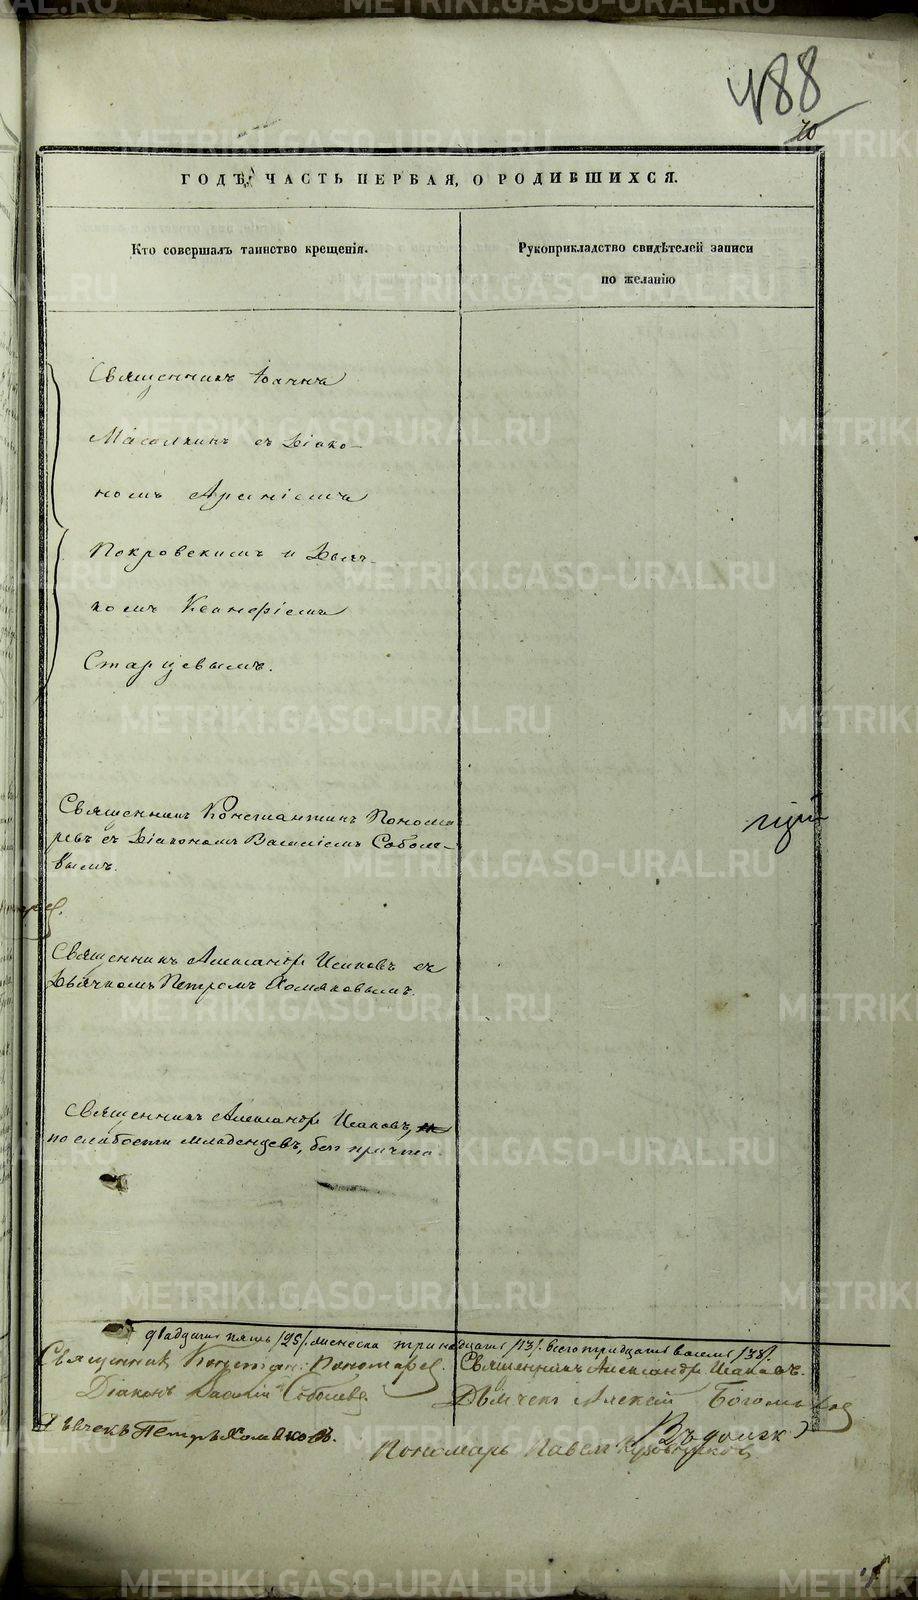 488
70
ГОДѢ, ЧАСТЬ ПЕРВАЯ, О РОДИВШИХСЯ.
Кто совершалъ таинство крещенія.
Рукоприкладство свидѣтелей записи
по желанію
Священникъ Іоаннъ
съ Діако-
номъ Арсеніемъ
Покровскимъ и Дьяч-
комъ
Старцевымъ.
Священникъ Константинъ Понома
ревъ съ Діакономъ Василіемъ Соболе-
вымъ.
Священникъ Александръ Исаковъ съ
Дьячкомъ Петромъ Хомяковымъ.
Священникъ Александръ Исаковъ,
по слабости младенцевъ, безъ причта.
двадцать пять /25/. женска тринадцать /13/. всего тридцать восемь /38/.
Священникъ Констан: Пономаревъ.
Священникъ Александръ Исаковъ.
Діаконъ Василій Соболевъ
Дьячекъ Алексей
Дьячекъ Петръ Хомяковъ.
Пономарь Павелъ
METRIKI.GASO-URAL.RU